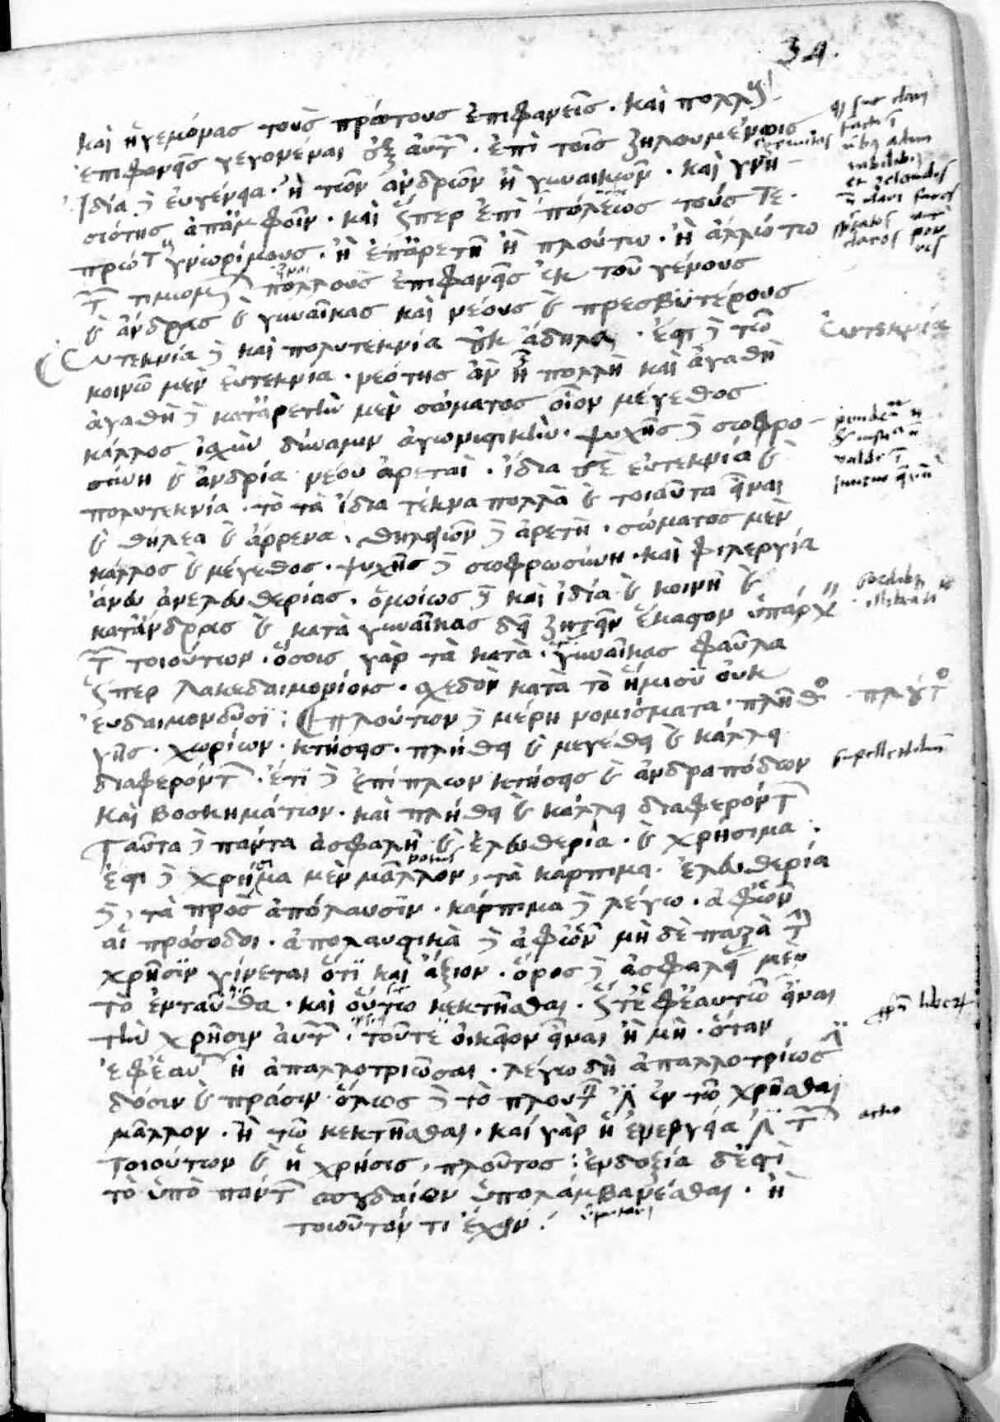 34.
καὶ ἡγεμόνας τοὺς πρώτους ἐπιφανεῖς · καὶ πολλοὺς
ἐπιφανεῖς γεγονέναι ἐξ αὐτῶν · ἐπὶ τοῖς ζηλουμένοις
ἰδία δὲ εὐγένεια · ἢ τῶν ἀνδρῶν ἢ γυναικῶν · καὶ γνη-
σιότης ἀπ' ἀμφοῖν · καὶ ὥσπερ ἐπὶ πόλεως τούς τε
πρώτους γνωρίμους · ἢ ἐπ' ἀρετῇ ἢ πλούτω · ἢ ἄλλω τω
τῶν τιμωμένων πολλοὺς ἐπιφανεῖς ἐκ τοῦ γένους
καὶ ἄνδρας καὶ γυναῖκας καὶ νέους καὶ πρεσβυτέρους
εὐτεκνία δὲ καὶ πολυτεκνία οὐκ ἄδηλα · ἔστι δὲ τῶ
εὐτεκνία
κοινῶ μὲν εὐτεκνία · νεότης ἂν ᾖ πολλὴ καὶ ἀγαθὴ
ἀγαθὴ δὲ κατ' ἀρετὴν μὲν σώματος οἷον μέγεθος
κάλλος ἰσχὺν δύναμιν ἀγωνιστικήν · ψυχῆς δὲ σωφρο-
σύνη καὶ ἀνδρία νέου ἀρεταὶ · ἰδία δὲ εὐτεκνία καὶ
πολυτεκνία · τὸ τὰ ἴδια τέκνα πολλὰ καὶ τοιαῦτα εἶναι
καὶ θήλεα καὶ ἄρρενα · θηλειῶν δὲ ἀρετὴ · σώματος μὲν
κάλλος καὶ μέγεθος · ψυχῆς δὲ σωφρωσύνη · καὶ φιλεργία
ἄνευ ἀνελευθερίας · ὁμοίως δὲ καὶ ἰδία καὶ κοινῆ καὶ
κατ' ἄνδρας καὶ κατὰ γυναῖκας δεῖ ζητεῖν ἕκαστον ὑπάρχειν
τῶν τοιούτων · ὅσοις γὰρ τὰ κατὰ · γυναῖκας φαῦλα
ὥσπερ Λακεδαιμονίοις · σχεδὸν κατὰ τὸ ἥμισυ οὐκ
εὐδαιμονοῦσι : πλούτου δὲ μέρη νομίσματα · πλῆθος
γῆς · χωρίων · κτήσεις · πλήθει καὶ μεγέθει καὶ κάλλει
διαφερόντων · ἔτι δὲ ἐπίπλων κτήσεις καὶ ἀνδραπόδων
καὶ βοσκημάτων · καὶ πλήθει καὶ κάλλει διαφερόντων
ταῦτα δὲ πάντα ἀσφαλῆ καὶ ἐλευθερία · καὶ χρήσιμα ·
ἔστι δὲ χρήσιμα μὲν μᾶλλον, τὰ κάρπιμα · ἐλευθερία
δὲ, τὰ πρὸς ἀπόλαυσιν · κάρπιμα δὲ λέγω · ἀφ' ὧν
αἱ πρόσοδοι · ἀπολαυστικὰ δὲ ἀφ' ὧν μηδὲ παρὰ τὴν
χρῆσιν γίνεται ὅτι καὶ ἄξιον · ὅρος δὲ ἀσφαλείας μὲν
τὸ ἐνταῦθα · καὶ οὕτω κεκτῆσθαι · ὥστ' ἐφ' ἑαυτῶ εἶναι
τὴν χρῆσιν αὐτῶν · τοῦ τε οἰκεῖον εἶναι ἢ μὴ · ὅταν
ἐφ' ἑαυτῶ ᾖ ἀπαλλοτριῶσαι · λέγω δὴ ἀπαλλοτρίωσιν
δόσιν καὶ πρᾶσιν · ὅλως δὲ τὸ πλουτεῖν ἐστιν ἐν τῶ χρῆσθαι
μᾶλλον · ἢ τῶ κεκτῆσθαι · καὶ γὰρ ἡ ἐνέργειά ἐστι τῶν
τοιούτων καὶ ἡ χρῆσις, πλοῦτος : εὐδοξία δ' ἐστὶ
τὸ ὑπὸ πάντων σπουδαίων ὑπολαμβάνεσθαι · ἢ
τοιοῦτόν τι ἔχειν :